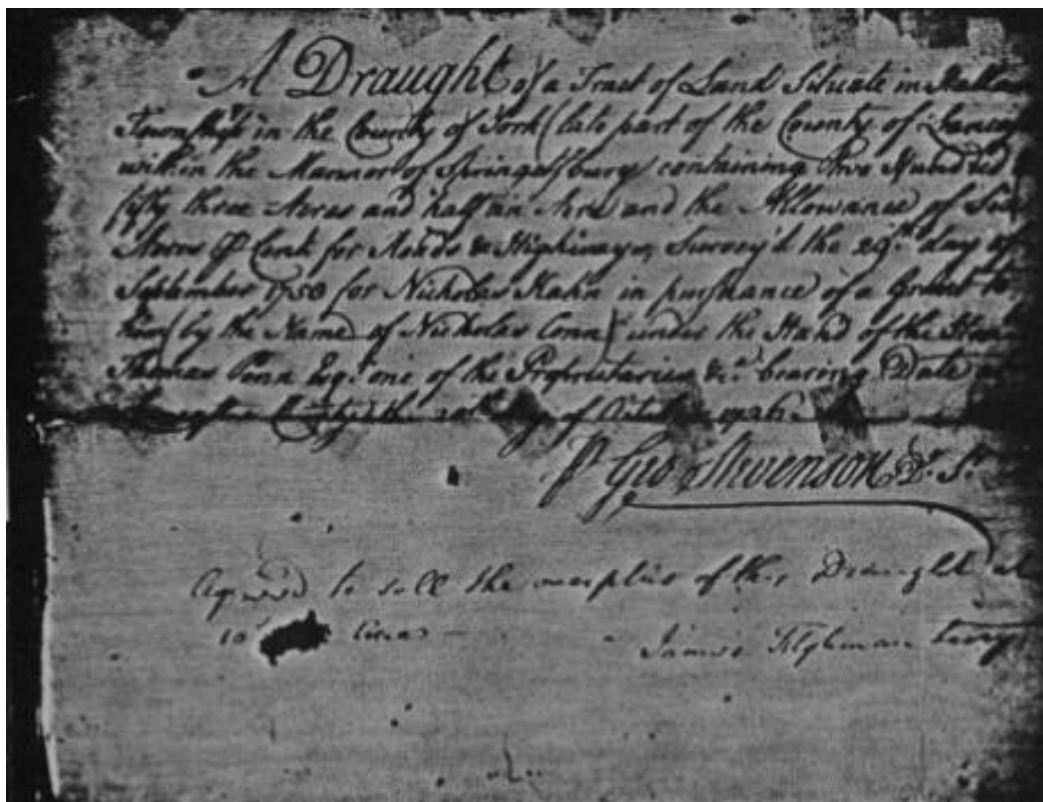 A Draught of a Tract of Land Situate in Hallam
Township in the County of York (late part of the County of Lancas
within the Mannor of Springetsbury containing Two Hundred
fifty three Acres and half an Acre and the Allowance of Six
Acres P Cent for Roads & Highways, Survey'd the 29th day of
September 1750 for Nicholas Kahn in pursuance of a Grant to
him (by the Name of Nicholas Conn) under the Hand of the Hon
Thomas Penn Esqr. one of the Proprietaries &ca. bearing Date at
County the day of October 1736
P Geo Stevenson D. S.
Agreed to sell the overplus of this Draught at
10 Acres
James Tilghman Secry